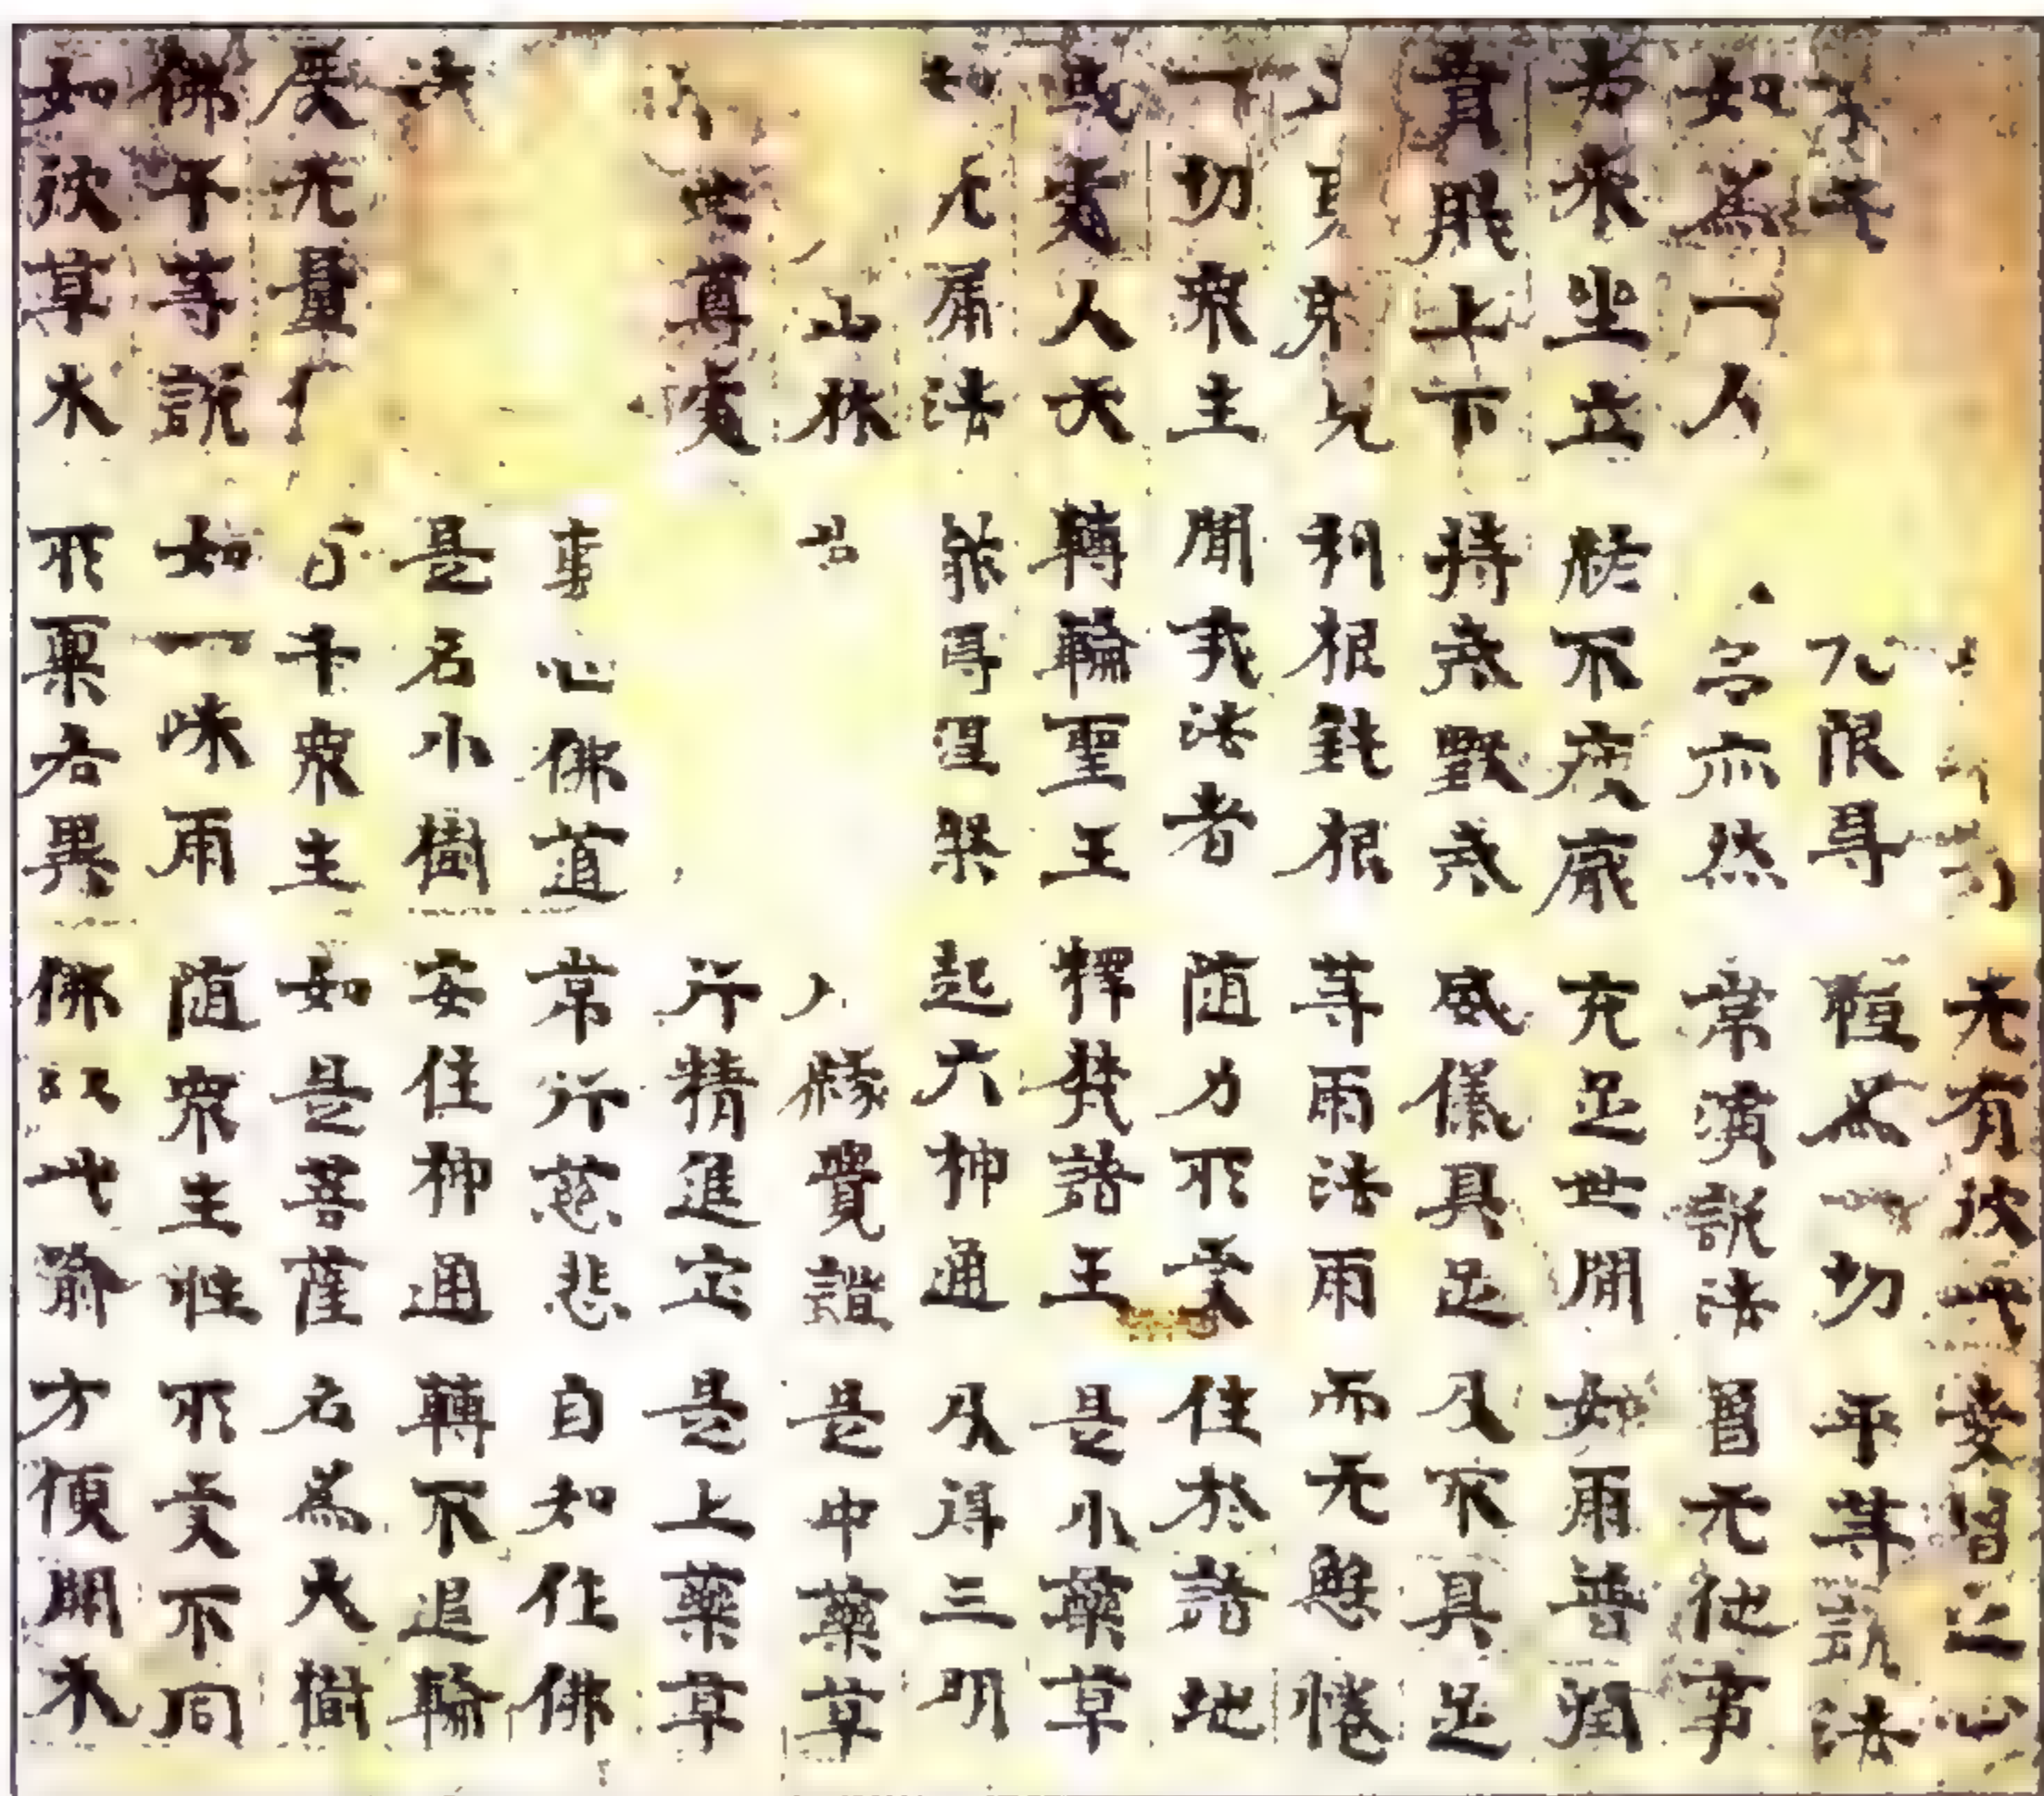 无有彼此 愛憎之心
限㝵 恒為一切 平等説法
如為一人 亦然 常演説法 曾无他事
去来坐立 終不疲厭 充足世間 如雨普潤
貴賤上下 持戒毀戒 威儀具足 及不具足
見 利根鈍根 等雨法雨 而无懈惓
一切衆生 聞我法者 随力所受 住於諸地
或處人天 轉輪聖王 釋梵諸王 是小藥草
知无漏法 能得涅槃 起六神通 及得三明
山林 縁覺證 是中藥草
世尊處 行精進定 是上藥草
專心佛道 常行慈悲 自知作佛
決 是名小樹 安住神通 轉不退輪
度无量 百千衆生 如是菩薩 名為大樹
佛平等説 如一味雨 随衆生性 所受不同
如彼草木 所稟各異 佛以此喻 方便開示